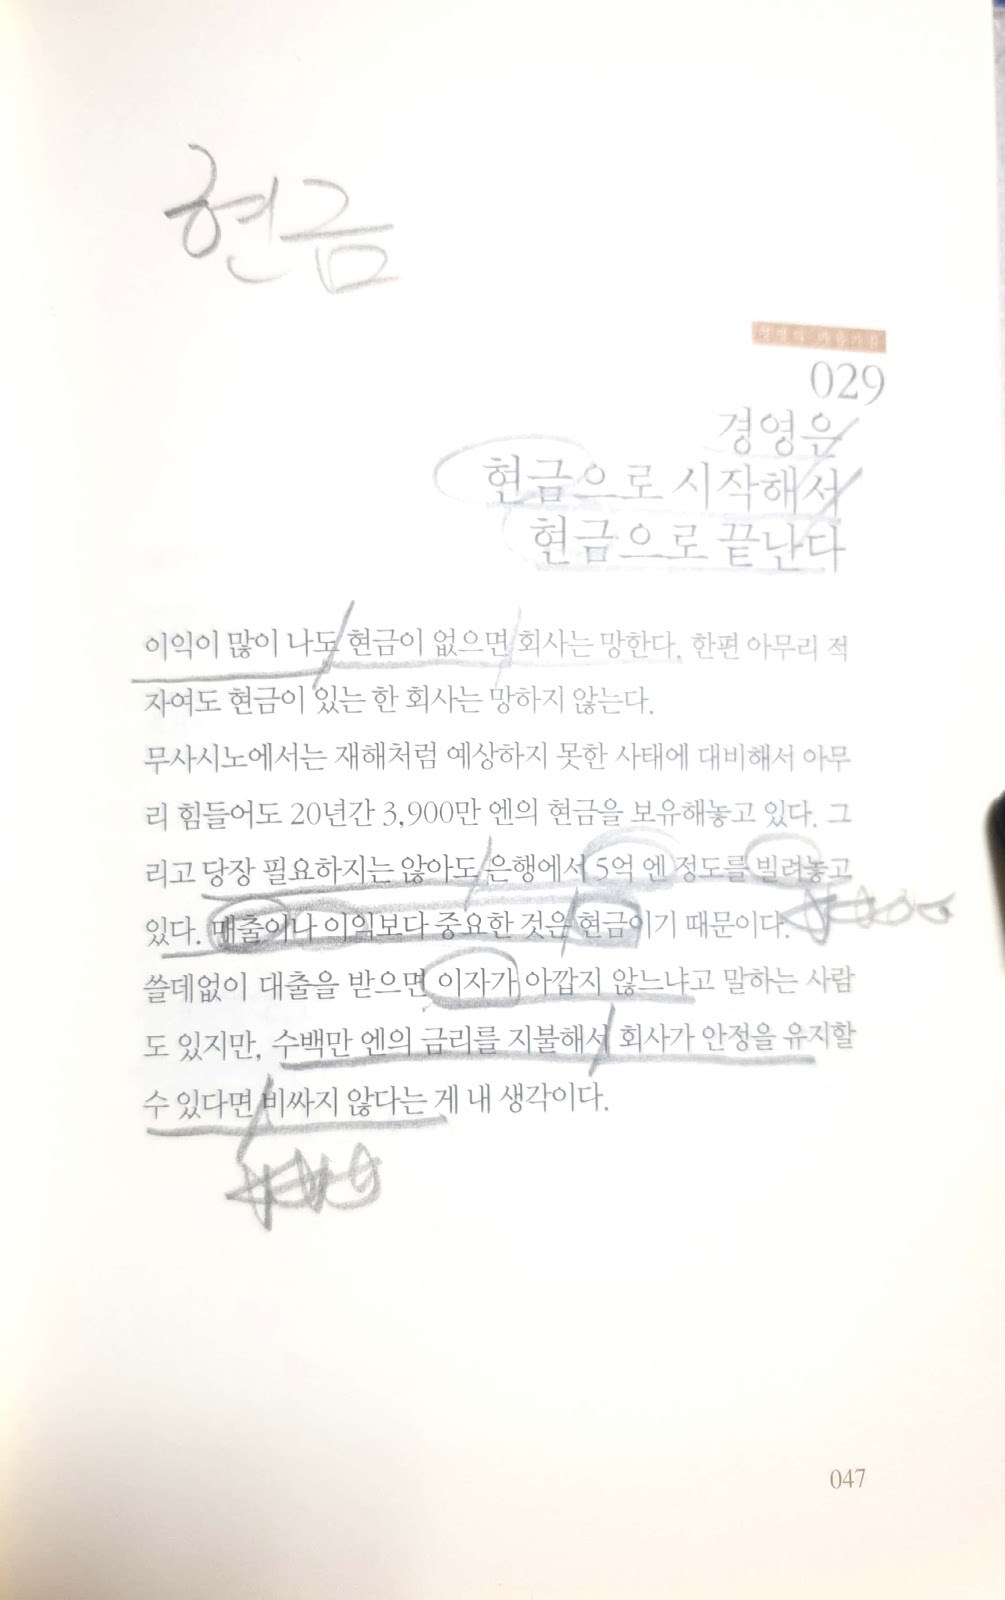 현금
029
경영은
현금으로 시작해서
현금으로 끝난다
이익이 많이 나도 현금이 없으면 회사는 망한다. 한편 아무리 적
자여도 현금이 있는 한 회사는 망하지 않는다.
무사시노에서는 재해처럼 예상하지 못한 사태에 대비해서 아무
리 힘들어도 20년간 3,900만 엔의 현금을 보유해놓고 있다. 그
리고 당장 필요하지는 않아도 은행에서 5억 엔 정도를 빌려놓고
있다. 매출이나 이익보다 중요한 것은 현금이기 때문이다.
쓸데없이 대출을 받으면 이자가 아깝지 않느냐고 말하는 사람
도 있지만, 수백만 엔의 금리를 지불해서 회사가 안정을 유지할
수 있다면 비싸지 않다는 게 내 생각이다.
047